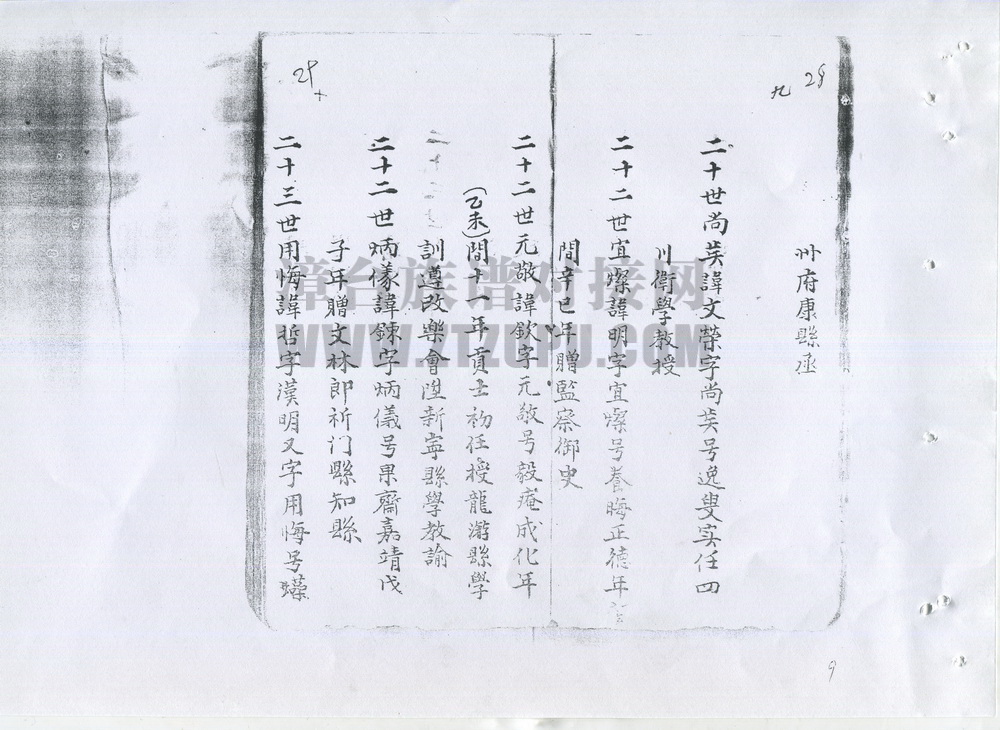 29
九
州府康縣丞
二十世尚英諱文榮字尚英号逸叟实任四
川衛學教授
二十二世宜燦諱明字宜燦号養晦正德年
間辛巳年贈監察御史
二十二世元敬諱欽字元敬号毅庵成化年
(乙未)間十一年貢士初任授龍游縣學
訓遵改樂會陞新寧縣學教諭
二十二世炳儀諱鍊字炳儀号果齋嘉靖戊
子年贈文林郎祈门縣知縣
二十三世用悔諱哲字漢明又字用悔号
29
漳台族谱对接网
9